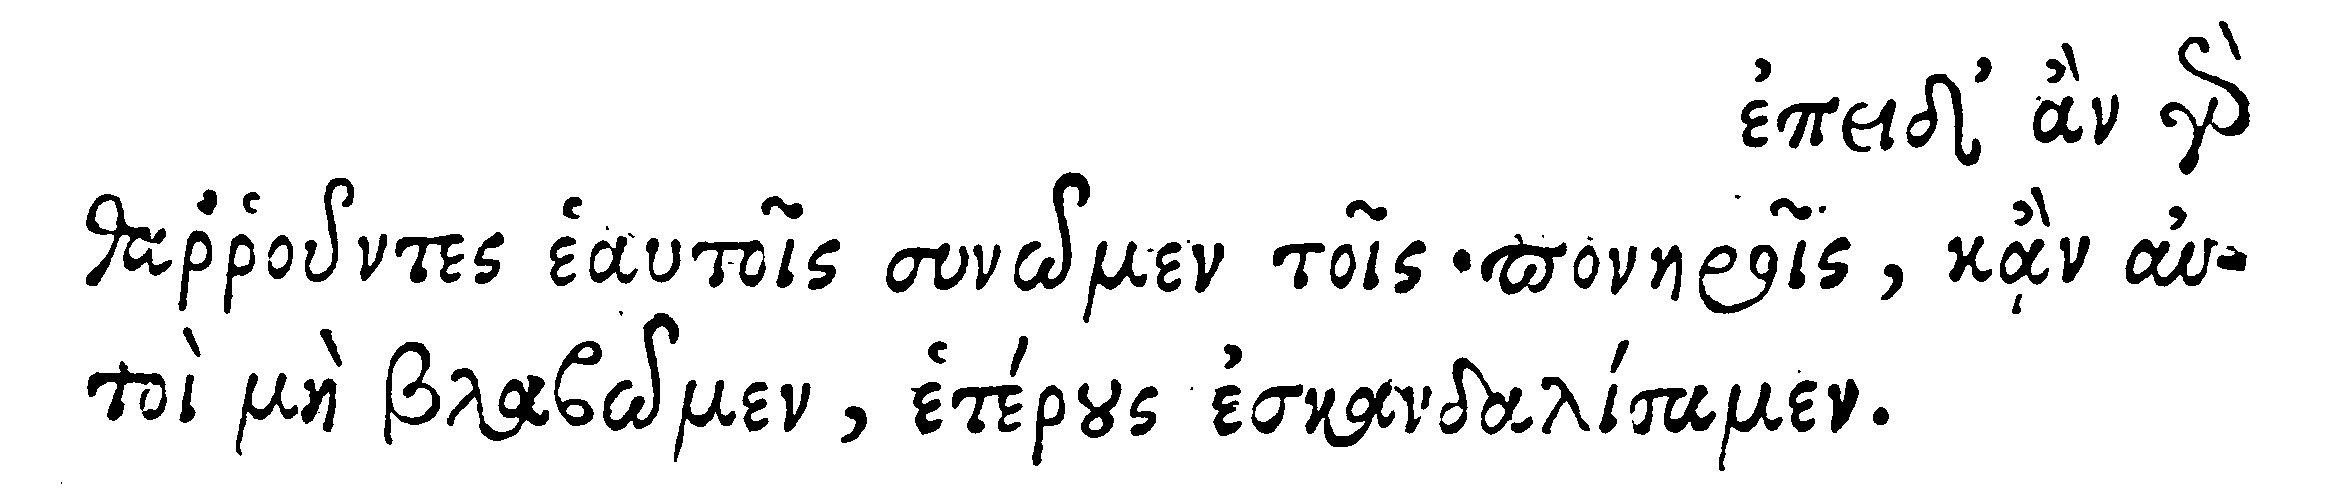 ἐπειδ᾽ ἂν γὰρ
θαῤῥοῦντες ἑαυτοῖς συνῶμεν τοῖς πονηροῖς, κᾂν αὐ-
τοὶ μὴ βλαβῶμεν, ἑτέρους ἐσκανδαλίσαμεν.